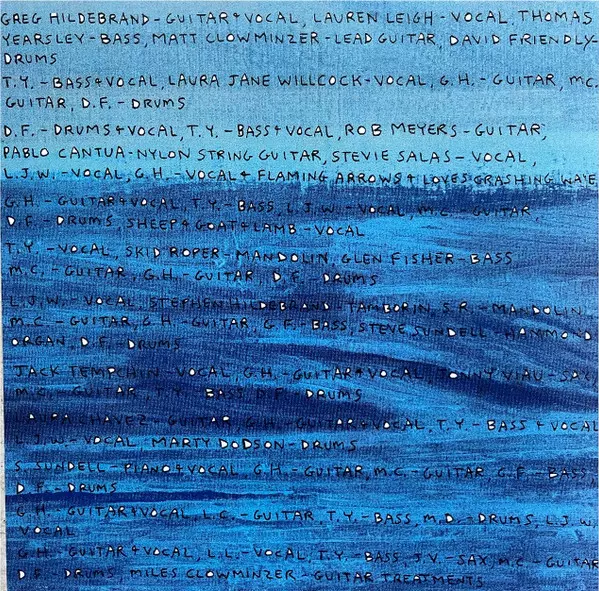 GREG HILDEBRAND - GUITAR & VOCAL, LAUREN LEIGH - VOCAL, THOMAS
YEARSLEY - BASS, MATT CLOWMINZER - LEAD GUITAR, DAVID FRIENDLY -
DRUMS
T.Y. - BASS & VOCAL, LAURA JANE WILLCOCK - VOCAL, G.H. - GUITAR, M.C.
GUITAR, D.F. - DRUMS
D.F. - DRUMS & VOCAL, T.Y. - BASS & VOCAL, ROB MEYERS - GUITAR,
PABLO CANTUA - NYLON STRING GUITAR, STEVIE SALAS - VOCAL,
L.J.W. - VOCAL, G.H. - VOCAL & FLAMING ARROWS & LOVES CRASHING WAVE
G.H. - GUITAR & VOCAL, T.Y. - BASS, L.J.W. - VOCAL, M.C. - GUITAR,
D.F. - DRUMS, SHEEP & GOAT & LAMB - VOCAL
T.Y. - VOCAL, SKID ROPER - MANDOLIN, GLEN FISHER - BASS,
M.C. - GUITAR, G.H. - GUITAR, D.F. - DRUMS
L.J.W. - VOCAL, STEPHEN HILDEBRAND - TAMBORIN, S.R. - MANDOLIN,
M.C. - GUITAR, G.H. - GUITAR, G.F. - BASS, STEVE SUNDELL - HAMMOND
ORGAN, D.F. - DRUMS
JACK TEMPCHIN - VOCAL, G.H. - GUITAR & VOCAL, JONNY VIAU - SAX,
M.C. - GUITAR, T.Y. - BASS, D.F. - DRUMS
LAURA CHAVEZ - GUITAR, G.H. - GUITAR & VOCAL, T.Y. - BASS & VOCAL
L.J.W. - VOCAL, MARTY DODSON - DRUMS
S. SUNDELL - PIANO & VOCAL, G.H. - GUITAR, M.C. - GUITAR, G.F. - BASS,
D.F. - DRUMS
G.H. - GUITAR & VOCAL, L.C. - GUITAR, T.Y. - BASS, M.D. - DRUMS, L.J.W.
VOCAL
G.H. - GUITAR & VOCAL, L.L. - VOCAL, T.Y. - BASS, J.V. - SAX, M.C. - GUITAR
D.F. - DRUMS, MILES CLOWMINZER - GUITAR TREATMENTS